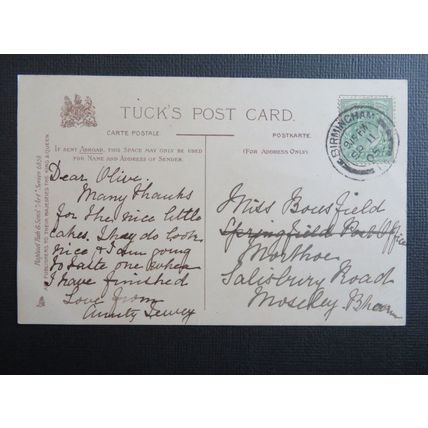 TUCK'S POST CARD.
CARTE POSTALE
POSTKARTE.
IF SENT ABROAD, THIS SPACE MAY ONLY BE USED
FOR NAME AND ADDRESS OF SENDER.
(FOR ADDRESS ONLY.)
Raphael Tuck & Sons' "Art" Series
ART PUBLISHERS TO THEIR MAJESTIES THE KING & QUEEN.
Dear Olive.
Many thanks
for the nice little
cakes. They do look
nice & I am going
to taste one when
I have finished
Love from
Aunty Dewey
BIRMINGHAM
8.15 PM
Miss Bousfield
Springfield Post Office
Salisbury Road
Moseley. B'ham